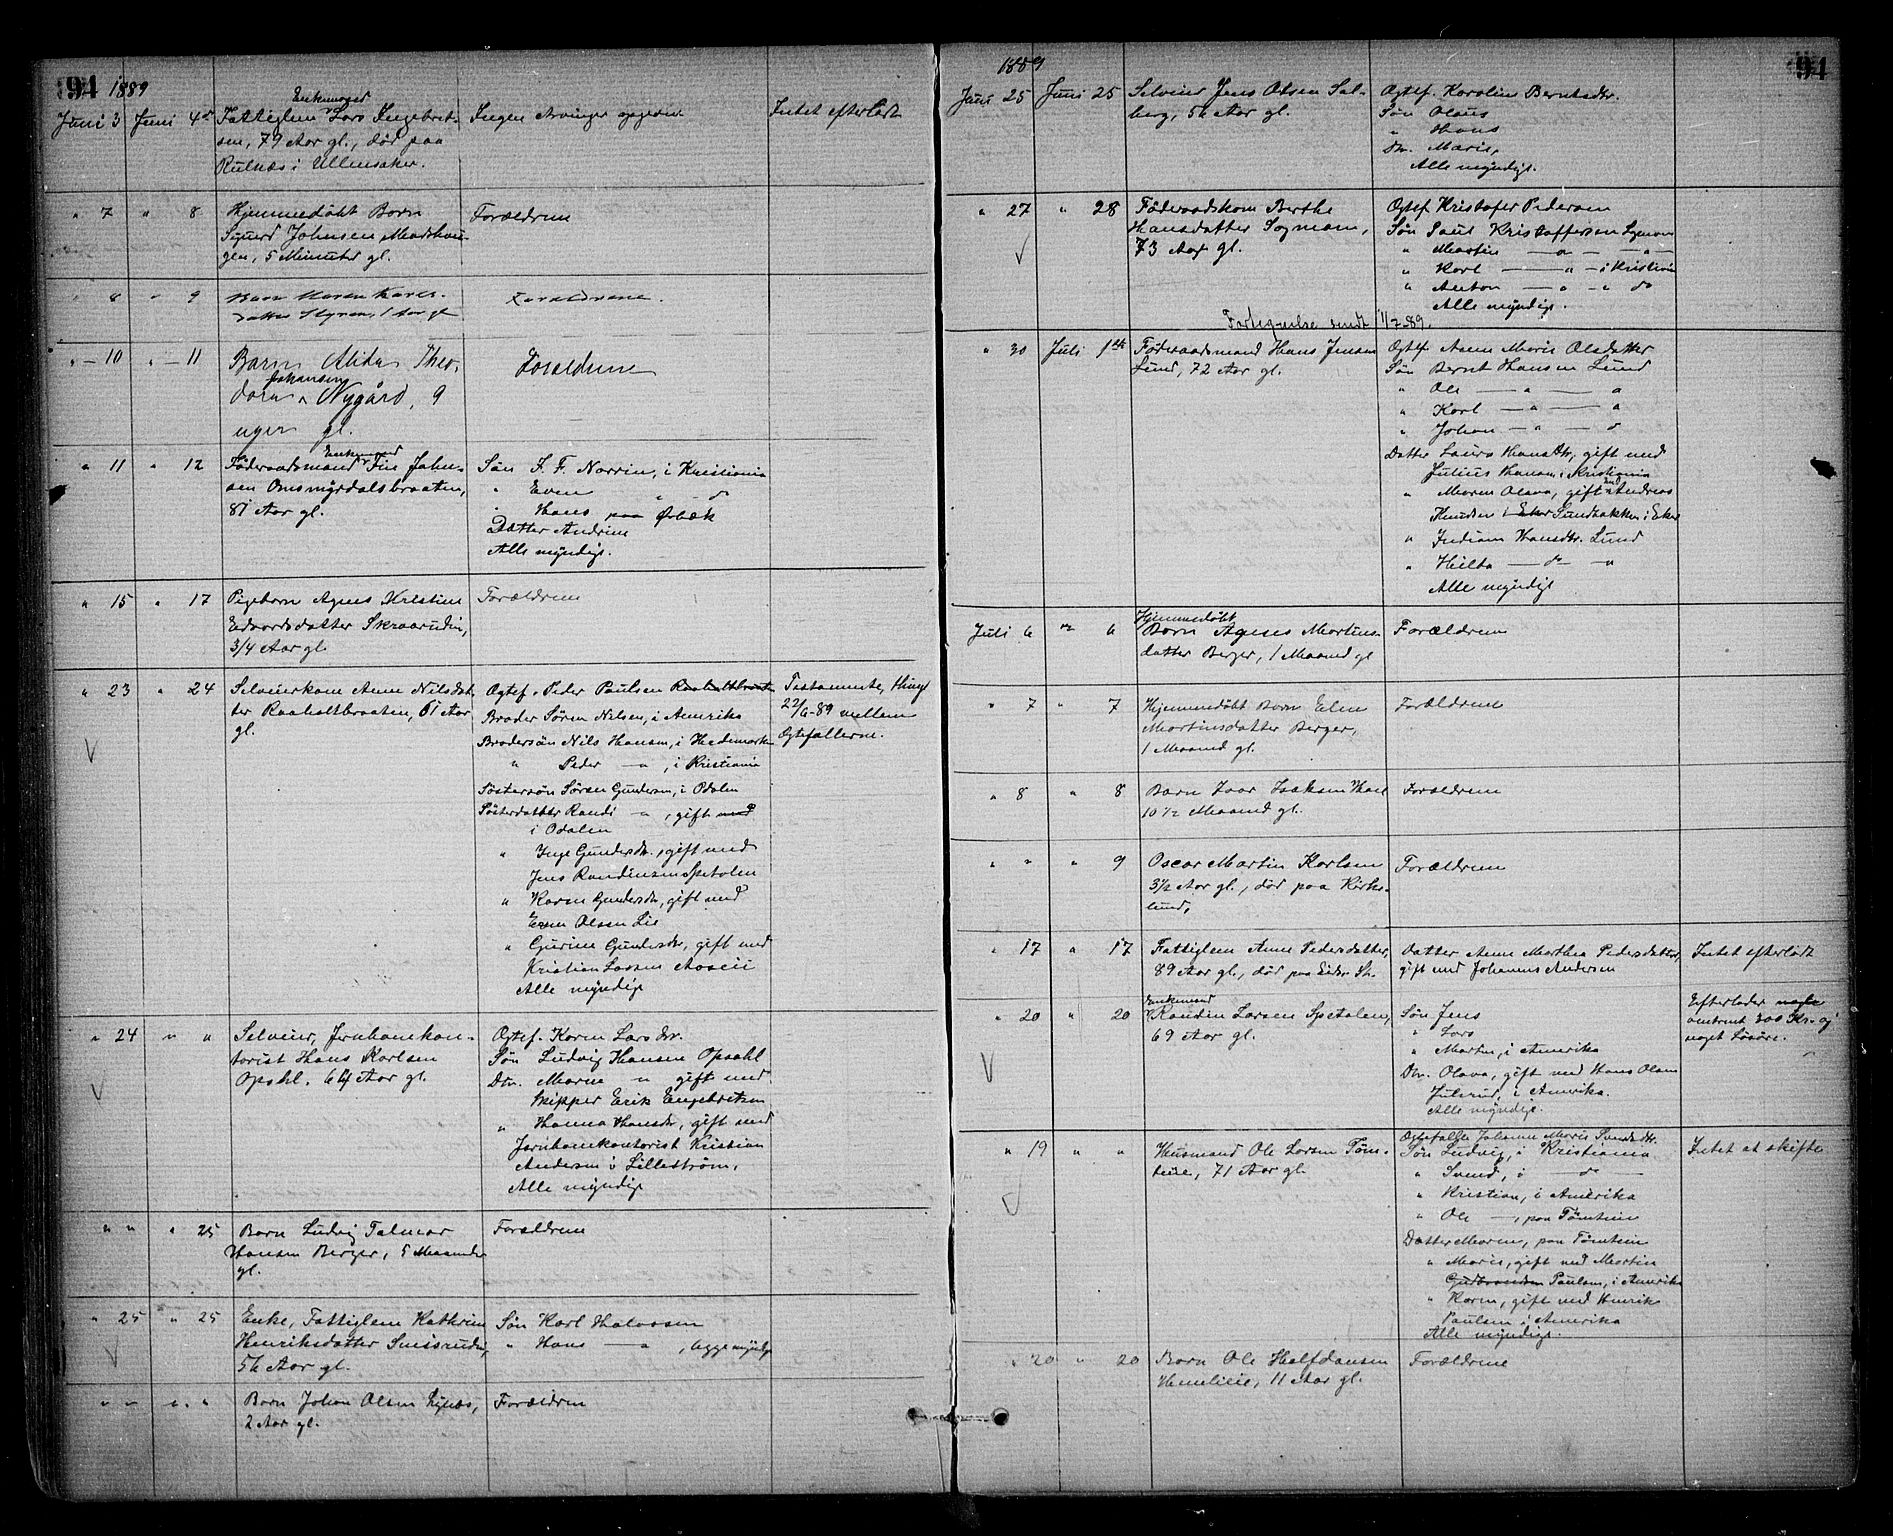 94 1889
Enkemand
Juni 3 Juni 4de Fattiglem Lars Ingebret- Ingen Arvinger opgivne Intet efterladt
sen, 79 Aar gl., død paa
i Ullensaker.
" 7 " 8 Hjemmedøbt Barn Forældrene
Sigurd Johnsen
gen, 5 Minuter gl.
" 8 " 9 Barn Maren Karls- Forældrene.
datter Styren, 1 Aar gl
" 10 " 11 Barn Alida Theo- Forældrene
Johansen
dora Nygård, 9
uger gl.
Enkemand
" 11 " 12 Føderaadsmand Fin John- Søn F. F. Norrin, i Kristiania
sen Onsmyrdalsbraaten, " Even " do
81 Aar gl. " Hans paa Ørbæk
Datter Andrine
Alle myndige.
" 15 " 17 Pigebarn Agnes Kristine Forældrene
Edvardsdatter Skraarudin,
3/4 Aar gl.
" 23 " 24 Selveierkone Anne Nilsdat- Ogtef. Peder Paulsen Raaholtbraaten Testamente, thingl
ter Raaholtbraaten, 61 Aar Broder Søren Nilsen, i Amerika 22/6-89 mellem
gl. Brodersøn Nils Hansen, i Hedemarken Ogtefællerne.
" Peder — " — , i Kristiania
Søstersøn Søren Gundersen, i Odalen
Søsterdatter Randi — " — , gift med
i Odalen
" Inge Gundersdtr., gift med
Jens Randinsen Spetalen
" Karen Gundersdtr, gift med
Even Olsen Lie
" Gurine Gundersdtr, gift med
Kristian Larsen Aaseie
Alle myndige
" 24 " " Selveier, Jernbanekon- Ogtef. Karen Larsdtr.
torist Hans Karlsen Søn Ludvig Hansen Opsahl
Opsahl, 64 Aar gl. Dtr. Marne " gift med
Skipper Erik Engebretsen
" Hanna Hansdtr, gift med
Jernbanekontorist Kristian
Andersen i Lillestrøm.
Alle myndige
" " " 25 Barn Ludvig Talmar Forældrene
Hansen Berger, 5 Maaneder
gl.
" 25 " 25 Enke, Fattiglem Kathrine Søn Karl Halvorsen
Henriksdatter Smisrudin, " Hans — " — , begge myndige
56 Aar gl.
" " " " Barn Johan Olsen Forældrene
2 Aar gl.
1889 94
Juni 25 Juni 25 Selveier Jens Olsen Sol- Ogtef. Karoline Berntsdtr.
berg, 56 Aar gl. Søn Olaus
" Hans
Dtr. Marie,
Alle myndige.
" 27 " 28 Føderaadskone Berthe Ogtef. Kristofer Pedersen
Hansdatter Sogmoen, Søn Paul Kristoffersen
73 Aar gl. " Martin — " — "
" Karl — " — i Kristiania
" Anton — " — " do
Alle myndige.
Fortegnelse sendt 11/7-89.
" 30 Juli 1ste Føderaadsmand Hans Jensen Ogtef. Anne Marie Olsdatter
Lund, 72 Aar gl. Søn Bernt Hansen Lund
" Ole — " — "
" Karl — " — "
" Johan — " — "
Datter Laura Hansdtr, gift med
Julius Hansen i Kristiania
" Maren Olava, gift med Andreas
Knudsen i Eker Sundbakken i Eker
" Indiane Hansdtr. Lund
" Hilda — " — "
Alle myndige
Hjemmedøbt
Juli 6 " 6 Barn Agnes Martins- Forældrene
datter Berger, 1 Maaned gl
" 7 " 7 Hjemmedøbt Barn Elen Forældrene
Martinsdatter Berger,
1 Maaned gl.
" 8 " 8 Barn Ivar Isaksen Forældrene
10 1/2 Maaned gl.
" " " 9 Oscar Martin Karlsen Forældrene
3 1/2 Aar gl., død paa Kirke-
lund,
" 17 " 17 Fattiglem Anne Pedersdatter, Datter Anne Marthea Pedersdatter, Intet efterladt
89 Aar gl., død paa gift med Johannes Andersen
Enkemand
" 20 " 20 Randin Larsen Spetalen, Søn Jens Efterlader nogle
69 Aar gl. " Lars omtrent 300 Kr. og
" Martin, i Amerika noget Løsøre.
Dtr. Olava, gift med Hans Olsen
Julsrud, i Amerika.
Alle myndige.
" 19 " " Husmand Ole Larsen Tøm- Ogtefælle Johanne Marie Svendsdtr. Intet at skifte
teie, 71 Aar gl. Søn Ludvig, i Kristiania
" Svend, i do —
" Kristian, i Amerika
" Ole —, paa Tømteie
Datter Maren, paa Tømteie
" Marie, gift med Martin
Gudbrandsen Paulsen, i Amerika
" Karen, gift med Henrik
Paulsen i Amerika
Alle myndige.
" 20 " 20 Barn Ole Halfdansen Forældrene
11 Aar gl.